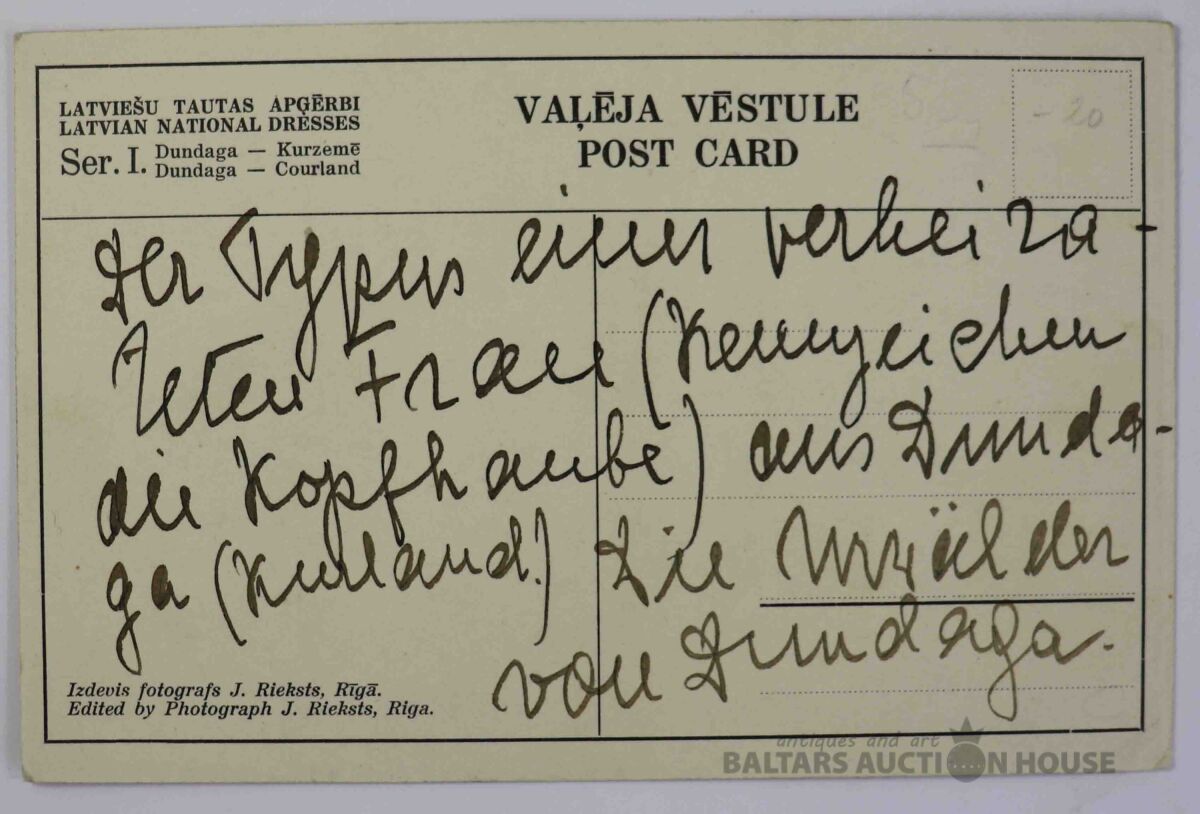 LATVIEŠU TAUTAS APĢĒRBI
LATVIAN NATIONAL DRESSES
Ser. I. Dundaga — Kurzemē
Dundaga — Courland
VAĻĒJA VĒSTULE
POST CARD
- 20
Der Typus einer verheira-
teten Frau (Kennzeichen
die Kopfhaube) aus Dunda-
ga (Kurland.) Die Urwälder
von Dundaga.
Izdevis fotografs J. Rieksts, Rīgā.
Edited by Photograph J. Rieksts, Riga.
antiques and art
BALTARS AUCTION HOUSE